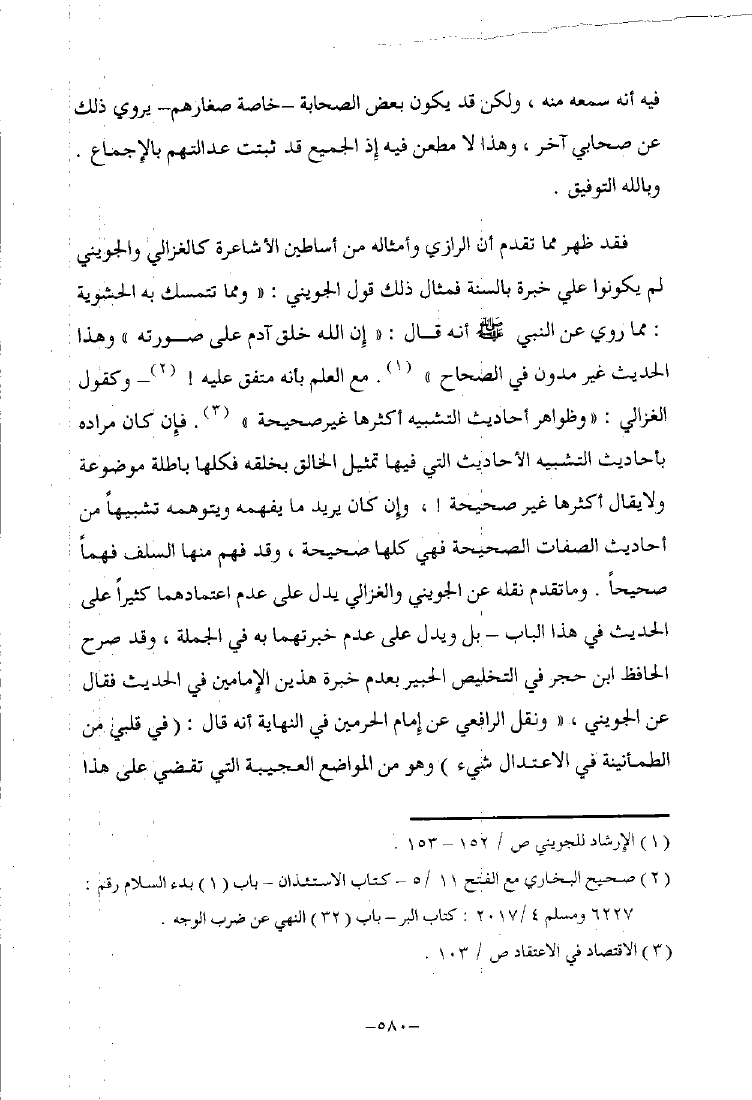 فيه أنه سمعه منه ، ولكن قد يكون بعض الصحابة –خاصة صغارهم– يروي ذلك
عن صحابي آخر ، وهذا لا مطعن فيه إذ الجميع قد ثبتت عدالتهم بالإجماع .
وبالله التوفيق .
فقد ظهر مما تقدم أن الرازي وأمثاله من أساطين الأشاعرة كالغزالي والجويني
لم يكونوا علي خبرة بالسنة فمثال ذلك قول الجويني : « ومما تتمسك به الحشوية
: مما روي عن النبي ﷺ أنه قــال : « إن الله خلق آدم على صــورته » وهذا
الحديث غير مدون في الصحاح » (١) . مع العلم بأنه متفق عليه ! (٢)_ وكقول
الغزالي : «وظواهر أحاديث التشبيه أكثرها غيرصحيحة » (٣) . فإن كان مراده
بأحاديث التشبيه الأحاديث التي فيها تمثيل الخالق بخلقه فكلها باطلة موضوعة
ولايقال أكثرها غير صحيحة ! ، وإن كان يريد ما يفهمه ويتوهمه تشبيهاً من
أحاديث الصفات الصحيحة فهي كلها صحيحة ، وقد فهم منها السلف فهماً
صحيحاً . وماتقدم نقله عن الجويني والغزالي يدل على عدم اعتمادهما كثيراً على
الحديث في هذا الباب – بل ويدل على عدم خبرتهما به في الجملة ، وقد صرح
الحافظ ابن حجر في التخليص الحبير بعدم خبرة هذين الإمامين في الحديث فقال
عن الجويني ، « ونقل الرافعي عن إمام الحرمين في النهاية أنه قال : ( في قلبي من
الطمـأنينة في الاعتـدال شيء ) وهو من المواضع العـجيبـة التي تقـضي على هذا
(١) الإرشاد للجويني ص / ١٥٢ – ١٥٣ .
(٢) صحيح البخاري مع الفتح ١١ /٥ – كتاب الاستئذان – باب (١) بدء السلام رقم :
٦٢٢٧ ومسلم ٤ /٢٠١٧ : كتاب البر – باب (٣٢) النهي عن ضرب الوجه .
(٣) الاقتصاد في الاعتقاد ص / ١٠٣ .
–٥٨٠–